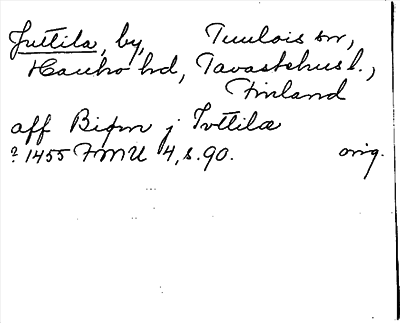 Juttila, by, Tuulois sn,
Hauho hd, Tavastehus l.,
Finland
aff Biørn j Ivttila
? 1455 FMU 4, s. 90. orig.